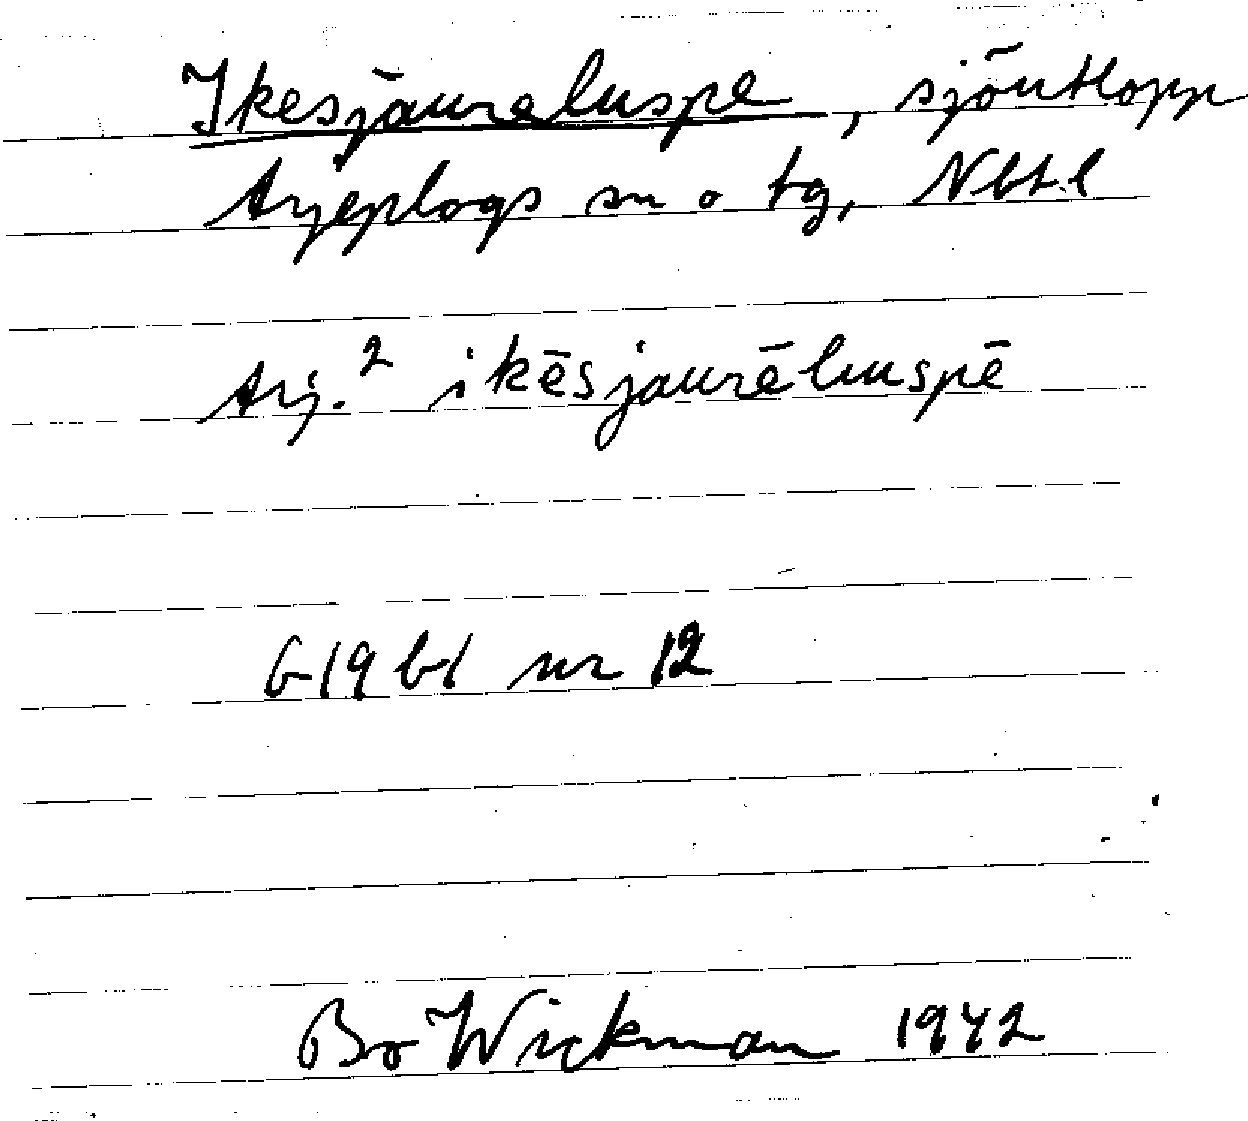 Ikesjaureluspe, sjöutlopp
Arjeplogs sn o tg, Nbt.l
Arj.² ikēsjaurēluuspē
G 19 b1 nr 12
Bo Wickman 1942